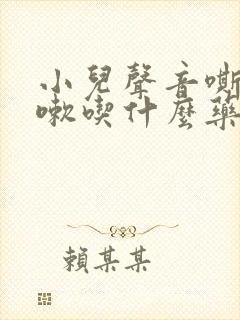 小兒聲音嘶
嗽喫什麼藥
賴某某